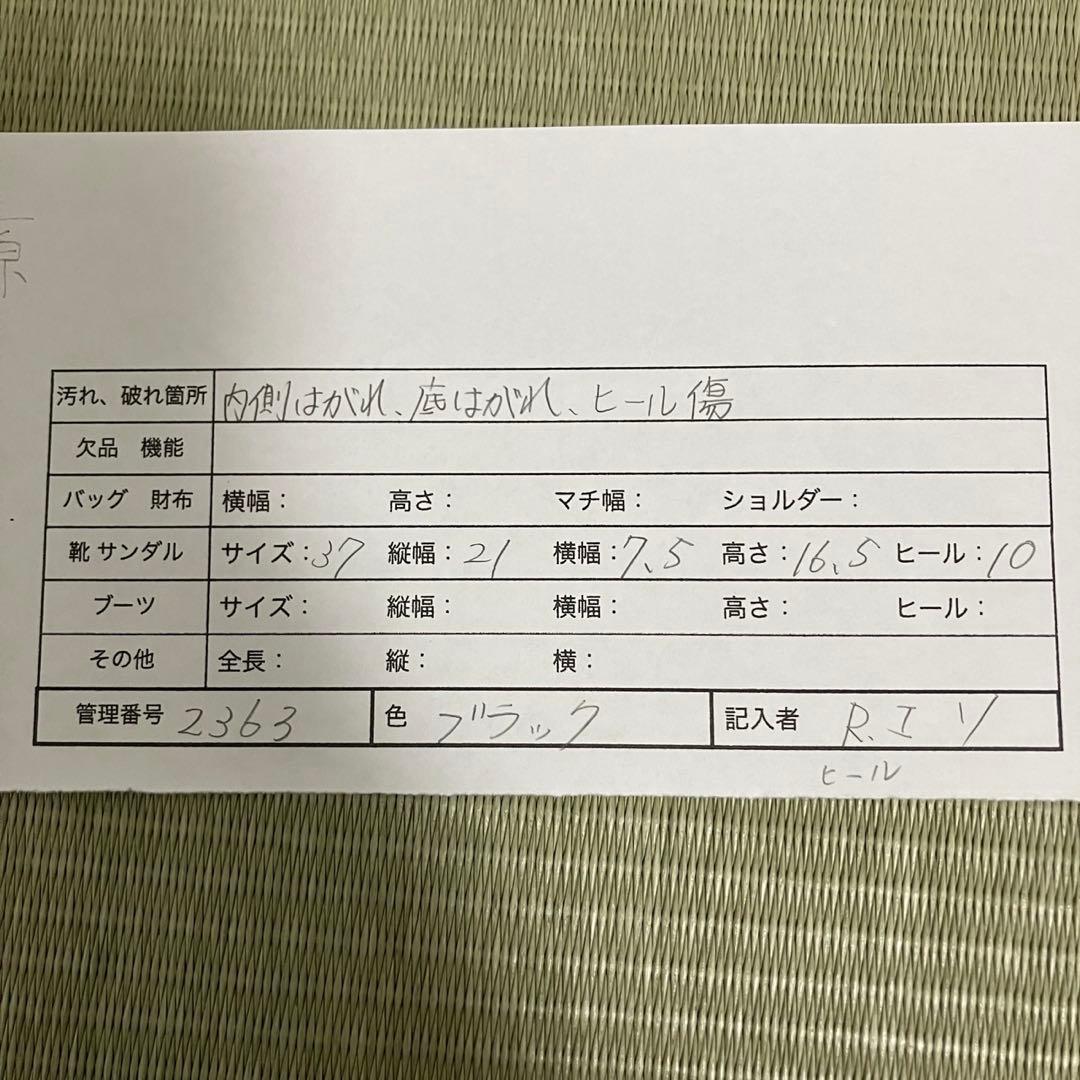 原
汚れ、破れ箇所 内側はがれ、底はがれ、ヒール傷
欠品 機能
バッグ 財布 横幅: 高さ: マチ幅: ショルダー:
靴 サンダル サイズ:37 縦幅:21 横幅:7.5 高さ:16.5 ヒール:10
ブーツ サイズ: 縦幅: 横幅: 高さ: ヒール:
その他 全長: 縦: 横:
管理番号 2363 色 ブラック 記入者 R.エソ
ヒール